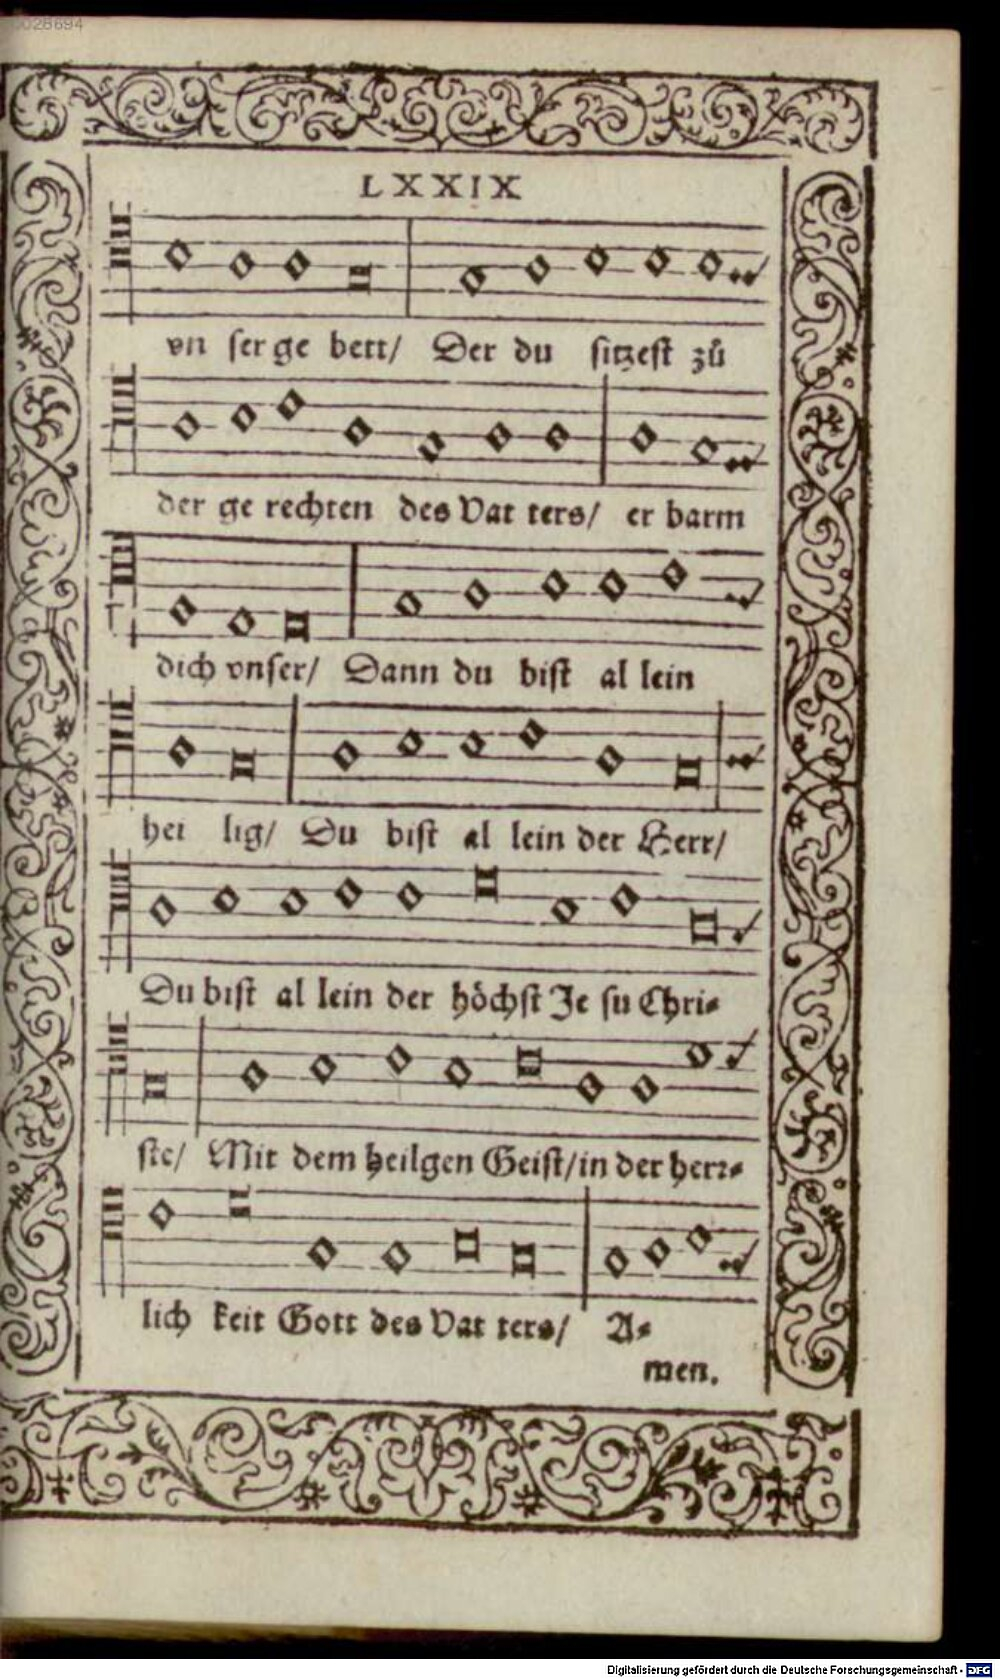 028694
LXXIX
vn ser ge bett/ Der du sitzest zů
der ge rechten des Vat ters/ er barm
dich vnser/ Dann du bist al lein
hei lig/ Du bist al lein der Herr/
Du bist al lein der höchst Je su Chri⸗
ste/ Mit dem heilgen Geist/in der herr⸗
lich keit Gott des Vat ters/ A⸗
men.
Digitalisierung gefördert durch die Deutsche Forschungsgemeinschaft - DFG